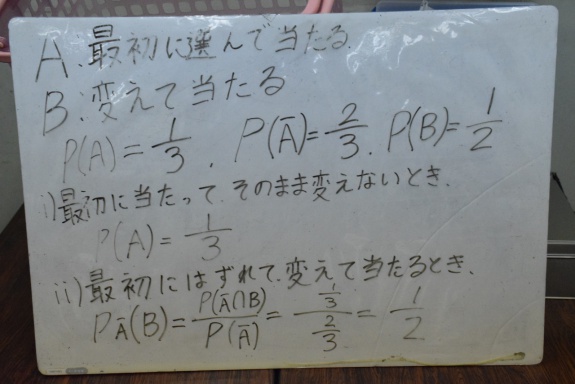 A:最初に選んで当たる.
B:変えて当たる
P(A)=1/3 . P(Ā)=2/3 . P(B)=1/2
i)最初に当たって.そのまま変えないとき.
P(A)=1/3
ii)最初にはずれて.変えて当たるとき.
PĀ(B)=P(Ā∩B)/P(Ā)=(1/3)/(2/3)=1/2